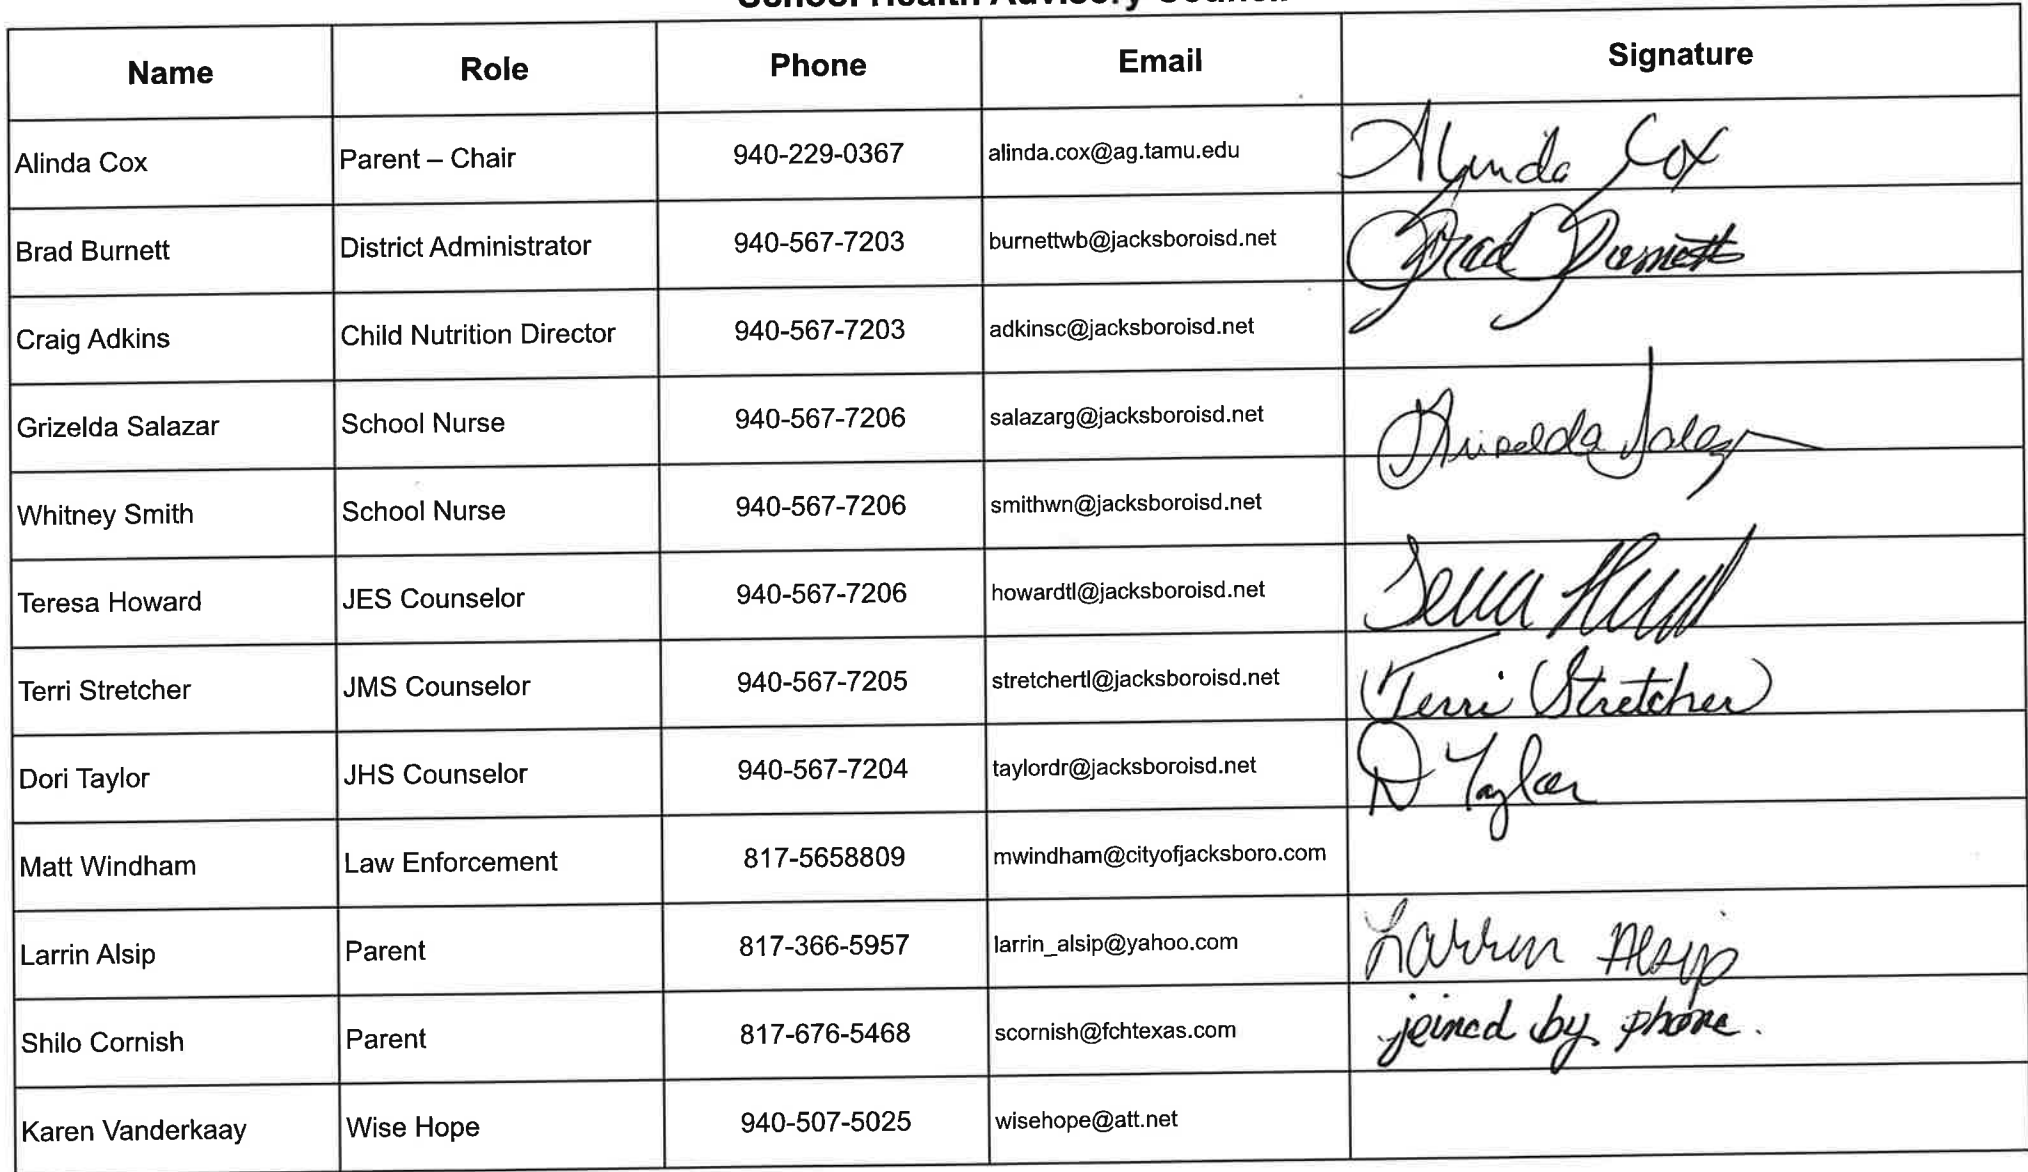 School Health Advisory Council
Name Role Phone Email Signature
Alinda Cox Parent – Chair 940-229-0367 alinda.cox@ag.tamu.edu Alinda Cox
Brad Burnett District Administrator 940-567-7203 burnettwb@jacksboroisd.net Brad Burnett
Craig Adkins Child Nutrition Director 940-567-7203 adkinsc@jacksboroisd.net
Grizelda Salazar School Nurse 940-567-7206 salazarg@jacksboroisd.net Griselda Salaz
Whitney Smith School Nurse 940-567-7206 smithwn@jacksboroisd.net
Teresa Howard JES Counselor 940-567-7206 howardtl@jacksboroisd.net
Terri Stretcher JMS Counselor 940-567-7205 stretchertl@jacksboroisd.net Terri Stretcher
Dori Taylor JHS Counselor 940-567-7204 taylordr@jacksboroisd.net D Taylor
Matt Windham Law Enforcement 817-5658809 mwindham@cityofjacksboro.com
Larrin Alsip Parent 817-366-5957 larrin_alsip@yahoo.com Larrin Alsip
Shilo Cornish Parent 817-676-5468 scornish@fchtexas.com joined by phone.
Karen Vanderkaay Wise Hope 940-507-5025 wisehope@att.net